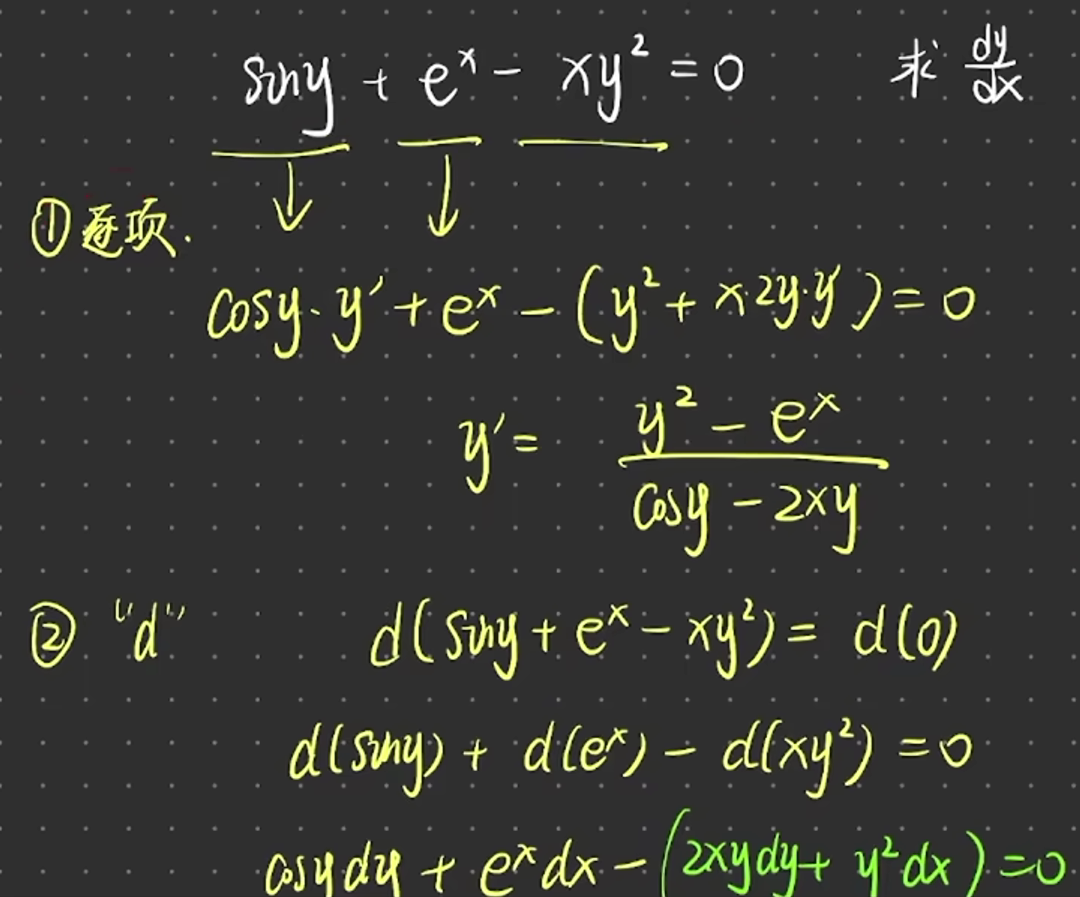 siny + eˣ - xy² = 0 求 dy/dx
① 逐项.
cosy · y′ + eˣ - (y² + x·2y·y′) = 0
y′ = (y² - eˣ)/(cosy - 2xy)
② "d" d(siny + eˣ - xy²) = d(0)
d(siny) + d(eˣ) - d(xy²) = 0
cosydy + eˣdx - (2xydy + y²dx) = 0